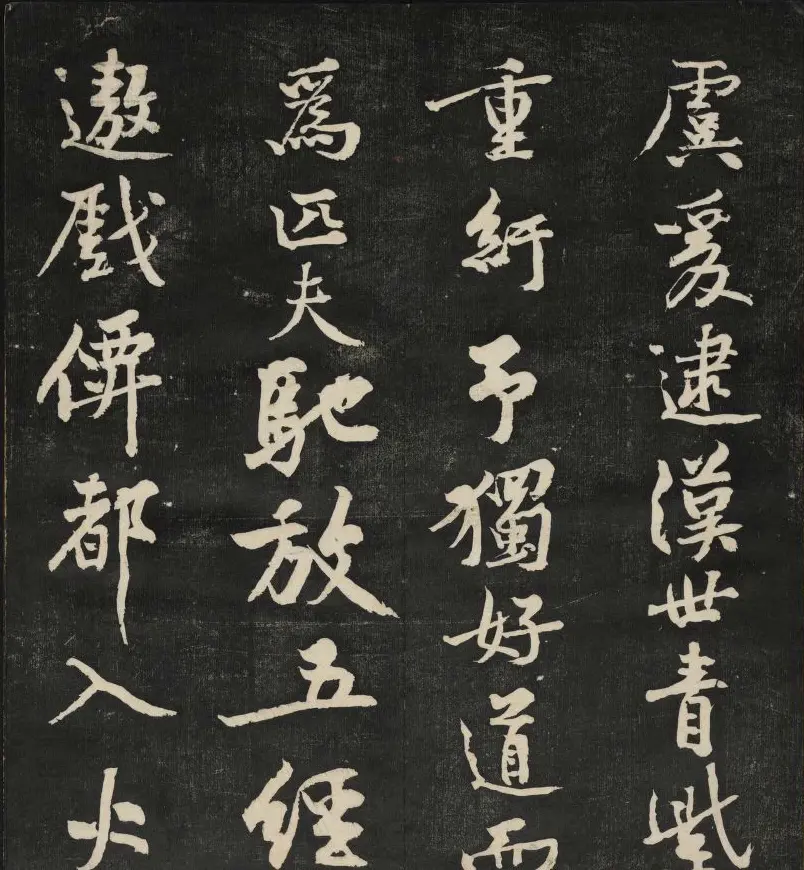 虞爰逮漢世青紫
重紆予獨好道而
為匹夫馳放五經
遨戲僊都入火